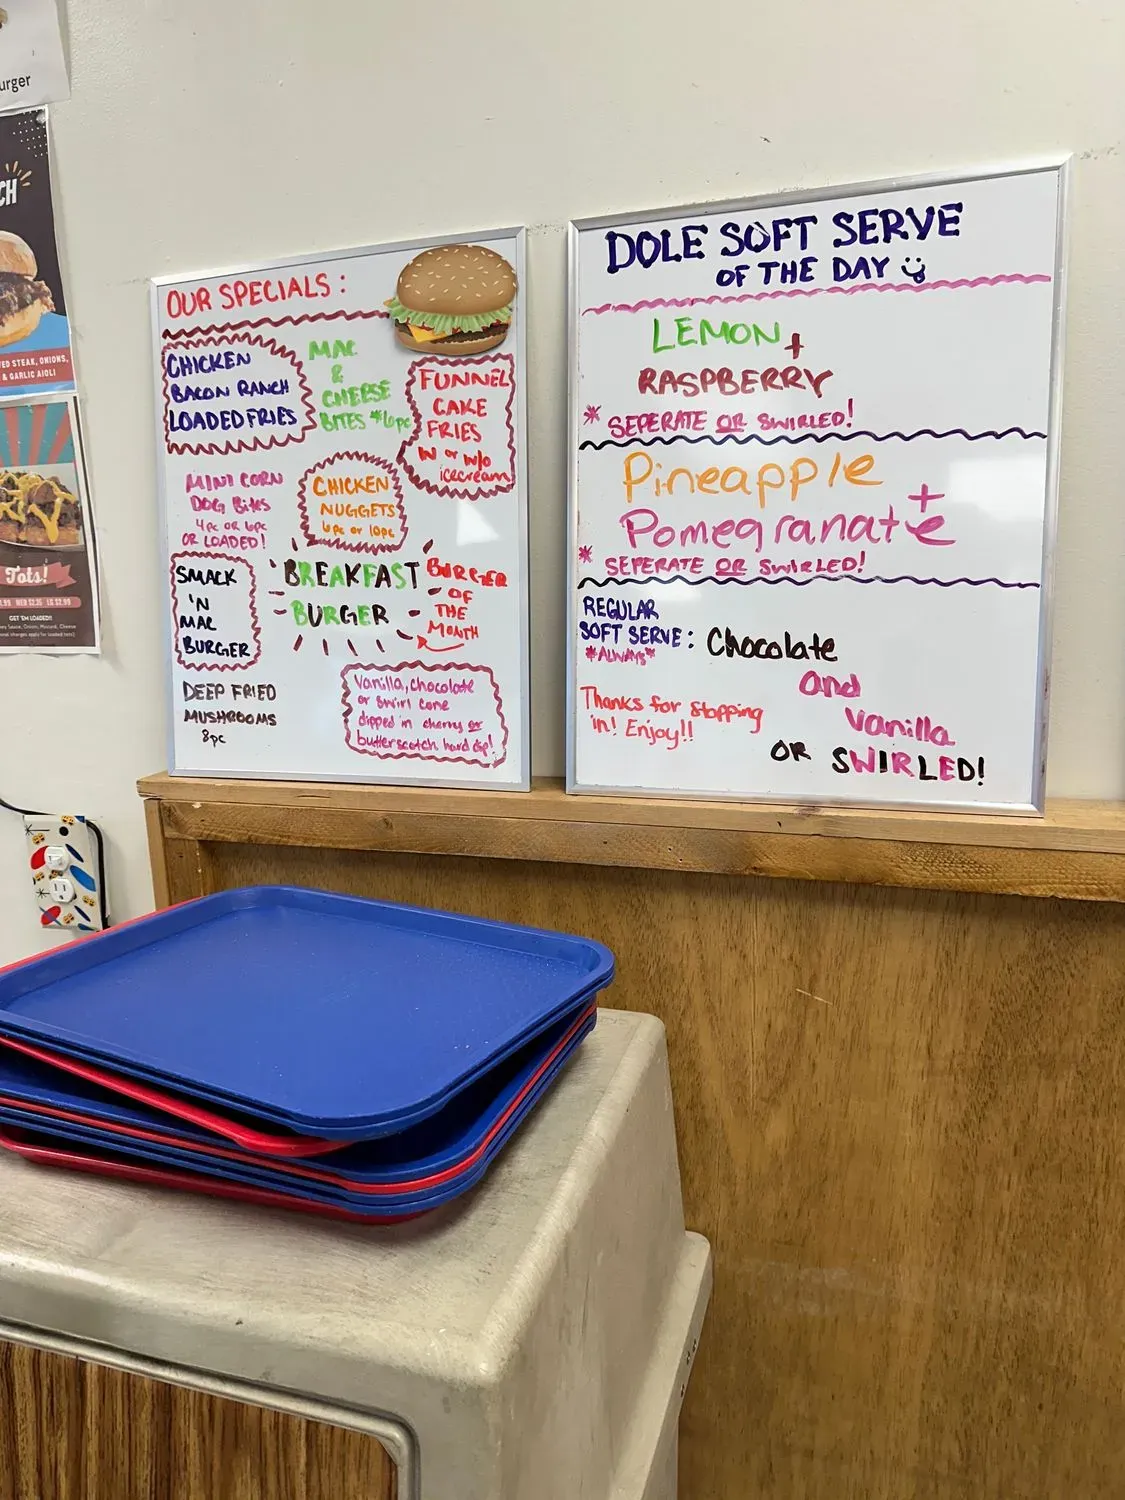 urger
CH
ED STEAK, ONIONS,
& GARLIC AIOLI
Tots!
MED $2.35 LG $2.99
GET 'EM LOADED!!
OUR SPECIALS:
CHICKEN
BACON RANCH
LOADED FRIES
MAC
&
CHEESE
BITES *6pc
FUNNEL
CAKE
FRIES
W or w/o
icecream
MINI CORN
DOG Bites
4pc or 6pc
OR LOADED!
CHICKEN
NUGGETS
6pc or 10pc
SMACK
'N
MAC
BURGER
BREAKFAST
BURGER
BURGER
OF
THE
MONTH
DEEP FRIED
MUSHROOMS
8pc
Vanilla, chocolate
or swirl cone
dipped in cherry or
butterscotch hard dip!
DOLE SOFT SERVE
OF THE DAY
LEMON +
RASPBERRY
* SEPERATE OR SWIRLED!
Pineapple
+
Pomegranate
* SEPERATE OR SWIRLED!
REGULAR
SOFT SERVE: Chocolate
*ALWAYS*
and
Vanilla
OR SWIRLED!
Thanks for stopping
in! Enjoy!!